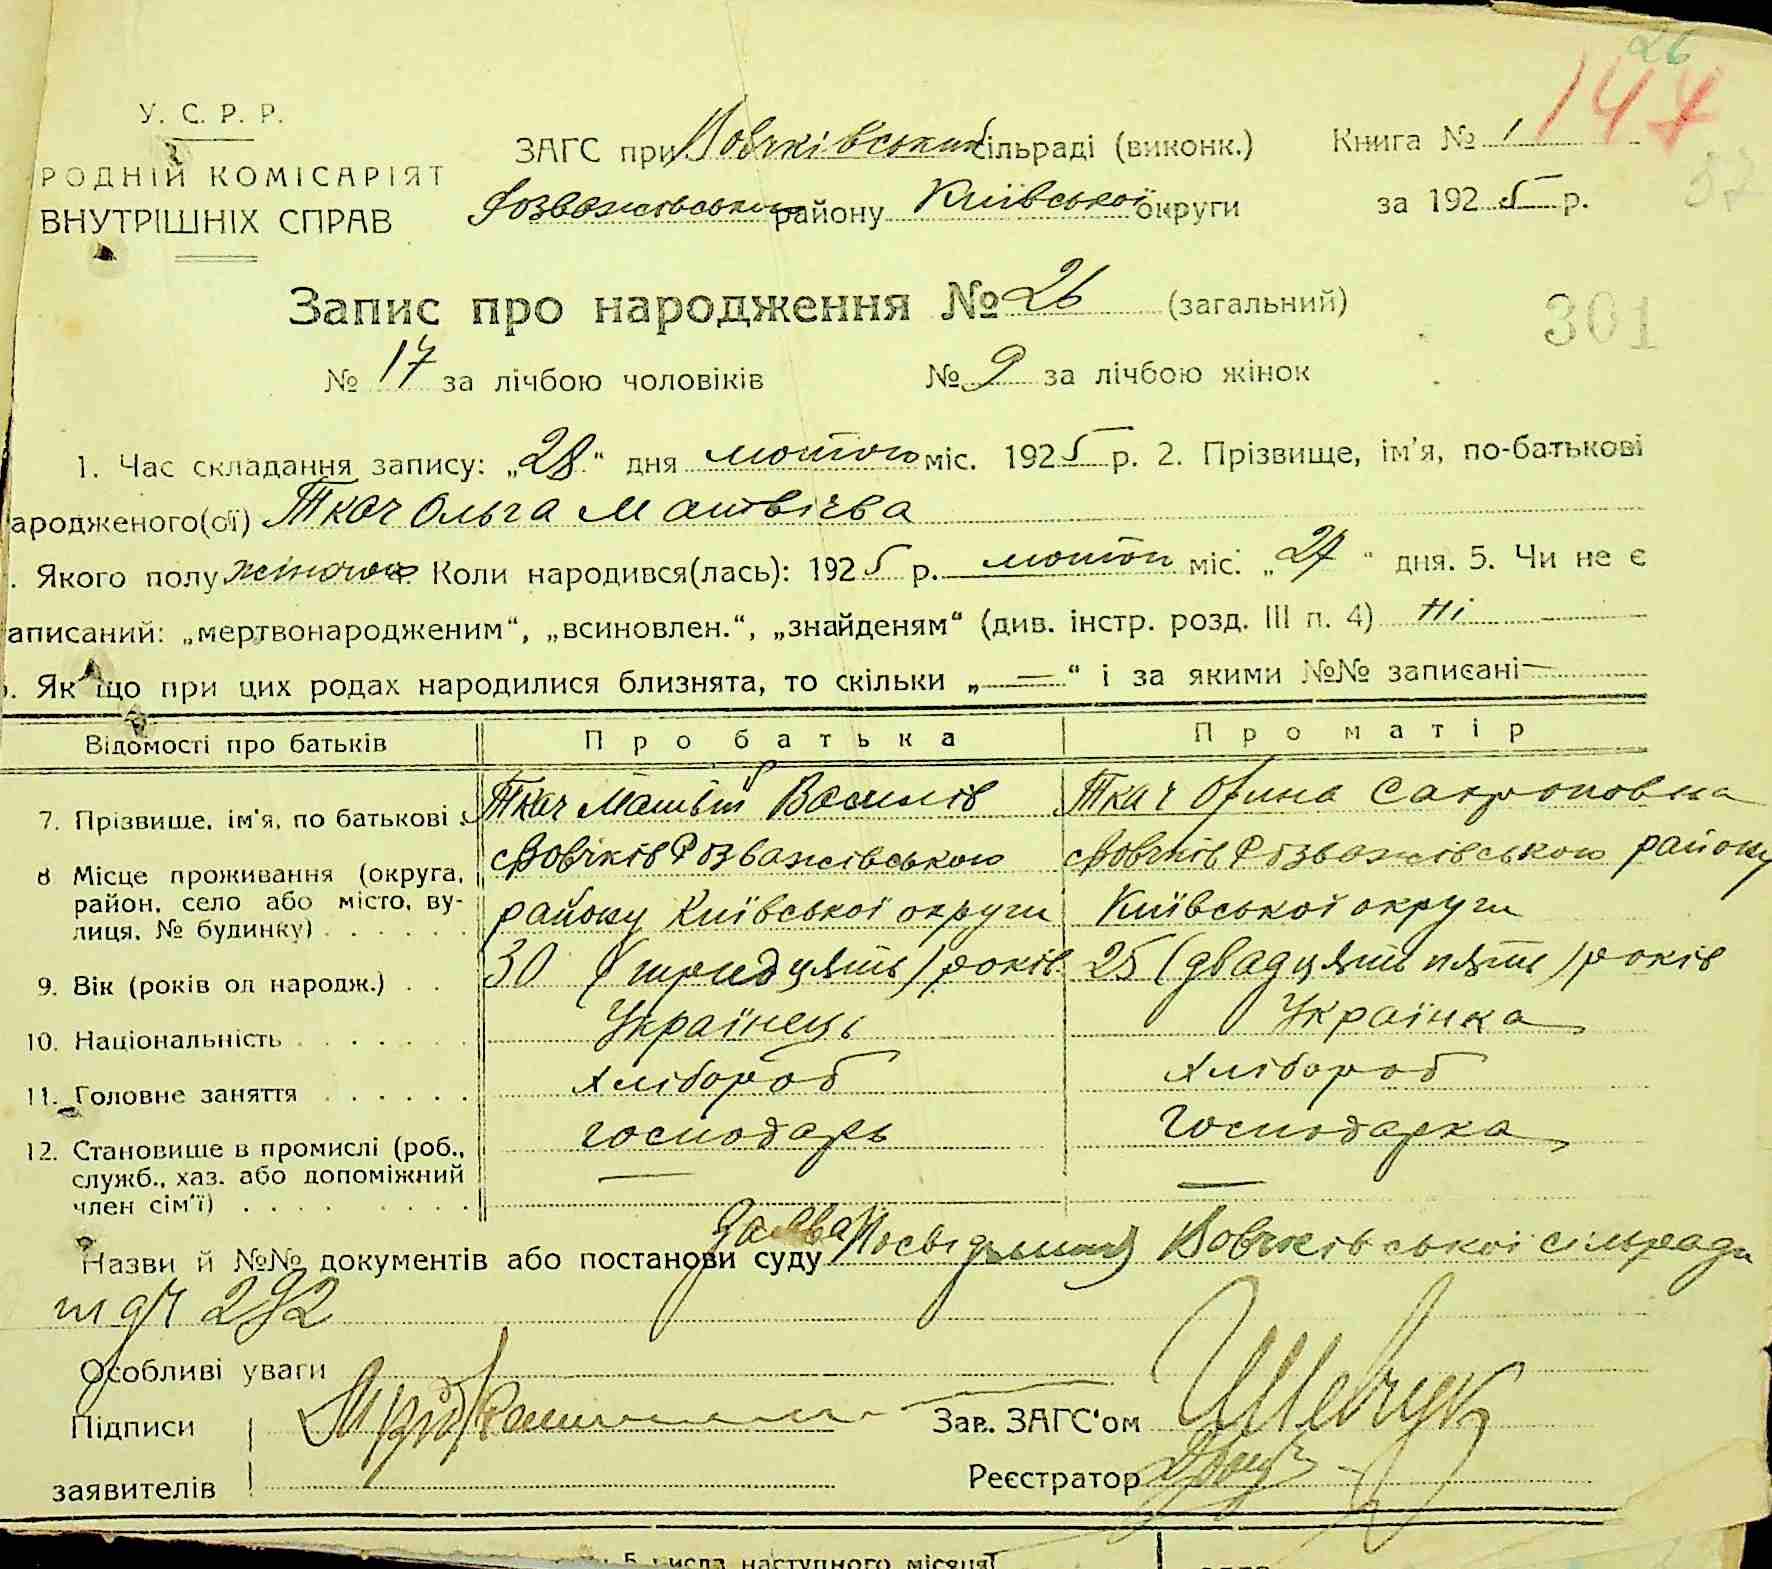 26
147
У. С. Р. Р.
РОДНІЙ КОМІСАРІЯТ
ВНУТРІШНІХ СПРАВ
ЗАГС при Вовчківський сільраді (виконк.)
Розважівського району Київської округи
Книга № 1
за 1925 р.
37
Запис про народження № 26 (загальний)
301
№ 17 за лічбою чоловіків № 9 за лічбою жінок
1. Час складання запису: „28“ дня лютого міс. 1925 р. 2. Прізвище, ім'я, по-батькові
ародженого(ої) Ткач Ольга Матвієва
. Якого полу жіночого Коли народився(лась): 1925 р. лютого міс. „27“ дня. 5. Чи не є
аписаний: „мертвонародженим“, „всиновлен.“, „знайденям“ (див. інстр. розд. III п. 4) Ні
. Як що при цих родах народилися близнята, то скільки „—“ і за якими №№ записані —
Відомості про батьків Про батька Про матір
7. Прізвище, ім'я, по батькові : Ткач Матвій Василів Ткач Орина Сафроновна
8 Місце проживання (округа, район, село або місто, вулиця, № будинку) . . . . . .
с Вовчків Розважівського району Київської округи
с Вовчків Розважівського району Київської округи
9. Вік (років од народж.) . . 30 (тридцять) років 25 (двадцять пять) років
10. Національність . . . . . . . Українець Українка
11. Головне заняття . . . . . . хлібороб хлібороб
12. Становище в промислі (роб., служб., хаз. або допоміжний член сім'ї) . . . . . . . .
господарь — господарка —
Назви й №№ документів або постанови суду Заява Посвідчення Вовчківської сільради
292
Особливі уваги
Підписи
заявителів
Зав. ЗАГС'ом Шевчук
Реєстратор
5 числа наступного місяця